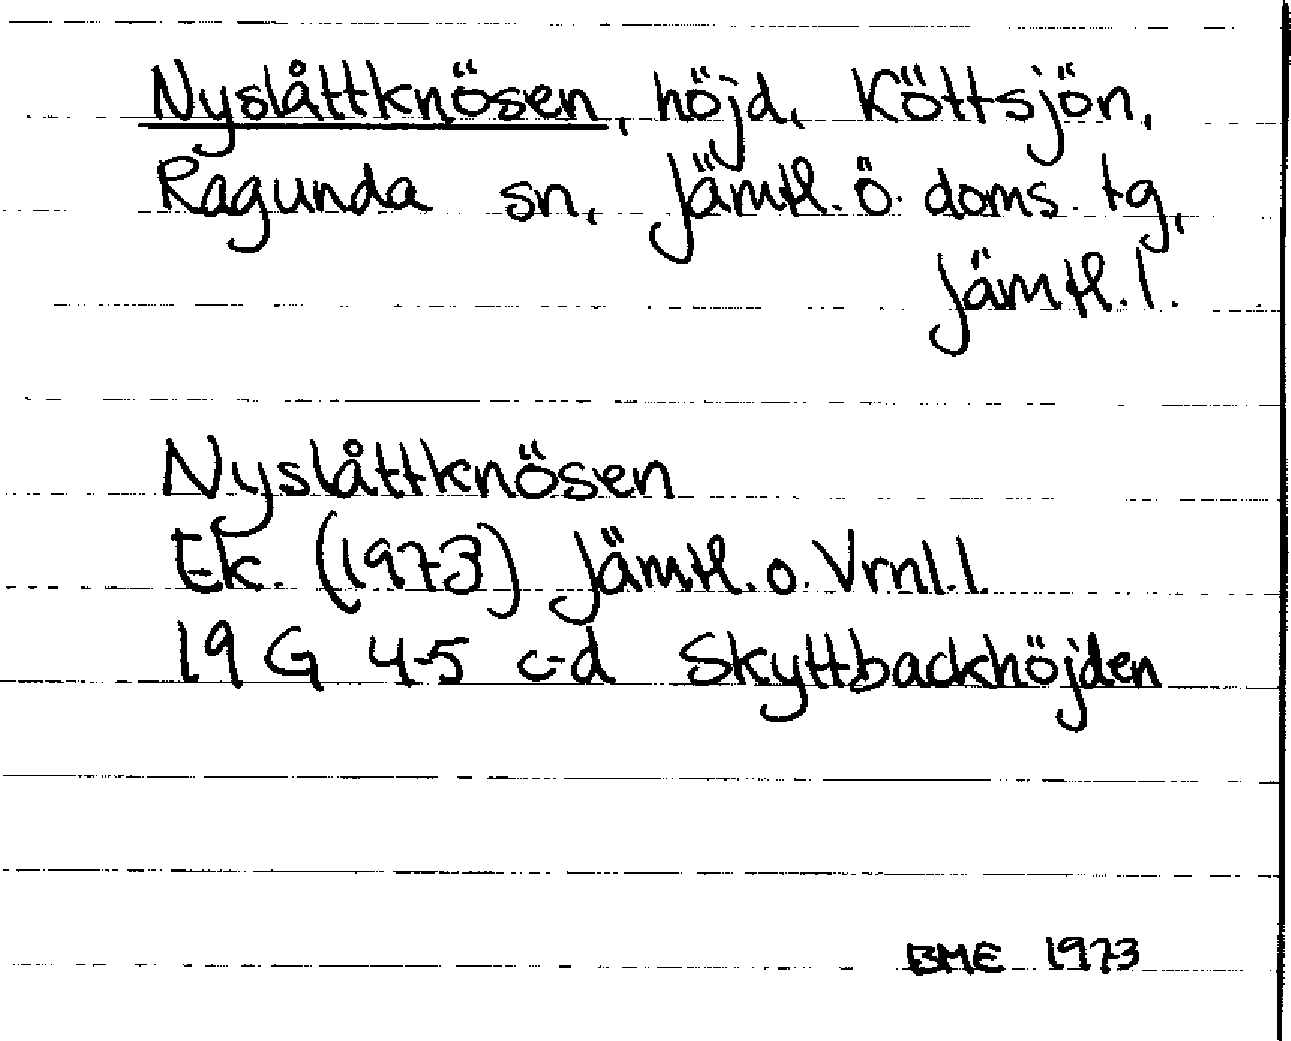 Nyslåttknösen, höjd, Köttsjön,
Ragunda sn, Jämtl. ö. doms. tg,
Jämtl. l.
Nyslåttknösen
Ek. (1973) Jämtl. o. Vrnl. l.
19 G 4-5 c-d Skyttbackhöjden
BME 1973